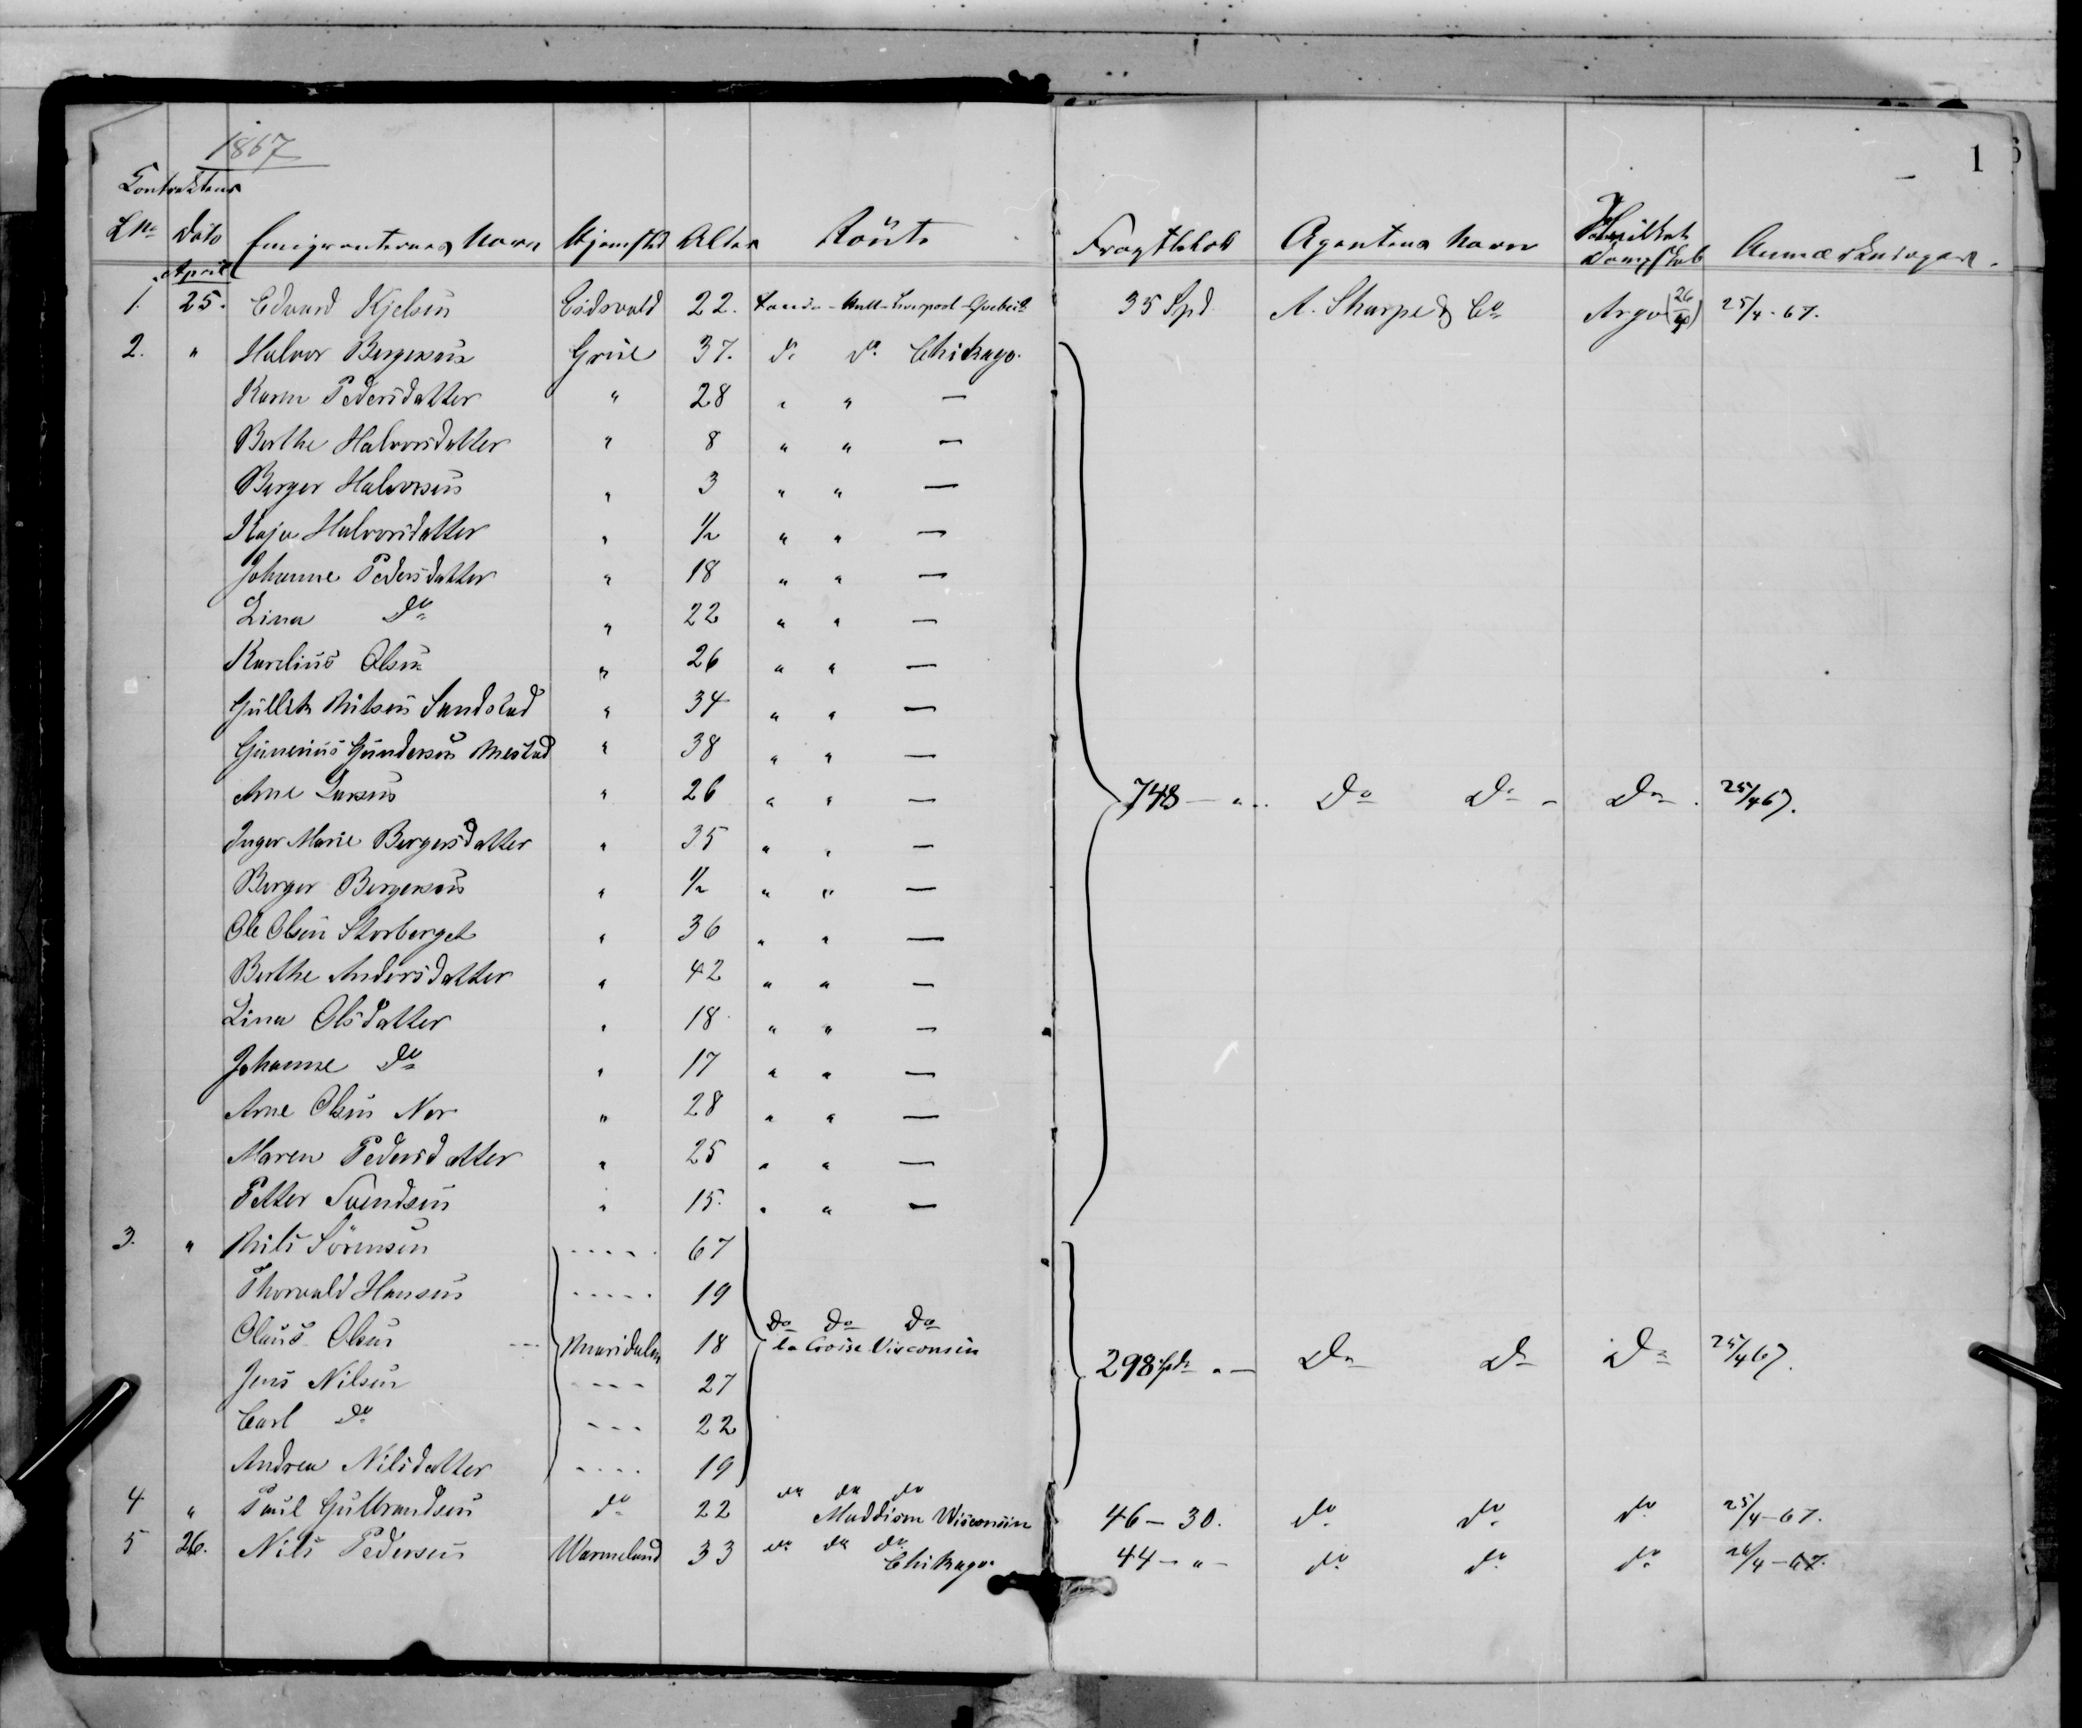 1867
1
Contraktens
LNo Dato Emigranternes Navn Hjemsted Alder Route Fragtbeløb Agentens Navn Dampskib Anmærkninger.
April
1. 25. Edvard Kjelsen Eidsvold 22. Hull - Liverpool - Quebec 35 Spd A. Sharpe & Co Argo (26/4) 25/4-67.
2. " Halvor Bergersen Grue 37. do do Chikago.
Karen Pedersdatter " 28 " " —
Berthe Halvorsdatter " 8 " " —
Berger Halvorsen " 3 " " —
Kaja Halvorsdatter " 1/2 " " —
Johanne Pedersdatter " 18 " " —
Lina Do " 22 " " —
Karelius Olsen " 26 " " —
Gullik Nilsen Sandstad " 34 " " —
Gunerius Gundersen Mestad " 38 " " —
Arne Larsen " 26 " " — 748 — " Do Do Do 25/4 67.
Inger Marie Bergersdatter " 35 " " —
Berger Bergersen " 1/2 " " —
Ole Olsen Storberget " 36 " " —
Berthe Andersdatter " 42 " " —
Lina Olsdatter " 18 " " —
Johanne Do " 17 " " —
Arne Olsen Nor " 28 " " —
Maren Pedersdatter " 25 " " —
Petter Svendsen " 15. " " —
3. " Nils Sörensen 67
Thorvald Hansen 19
Do Do Do
Olaus Olsen Maridalen 18 la Croise Visconsin 298 Spd " — Do Do Do 25/4 67.
Jens Nilsen 27
Carl Do 22
Andrea Nilsdatter 19
do do do
4 " Paul Gulbrandsen do 22 Maddison Wisconsin 46 - 30. do do do 25/4-67.
5 26. Nils Pedersen Warmeland 33 do do do Chikago. 44 - " - do do do 26/4-67.